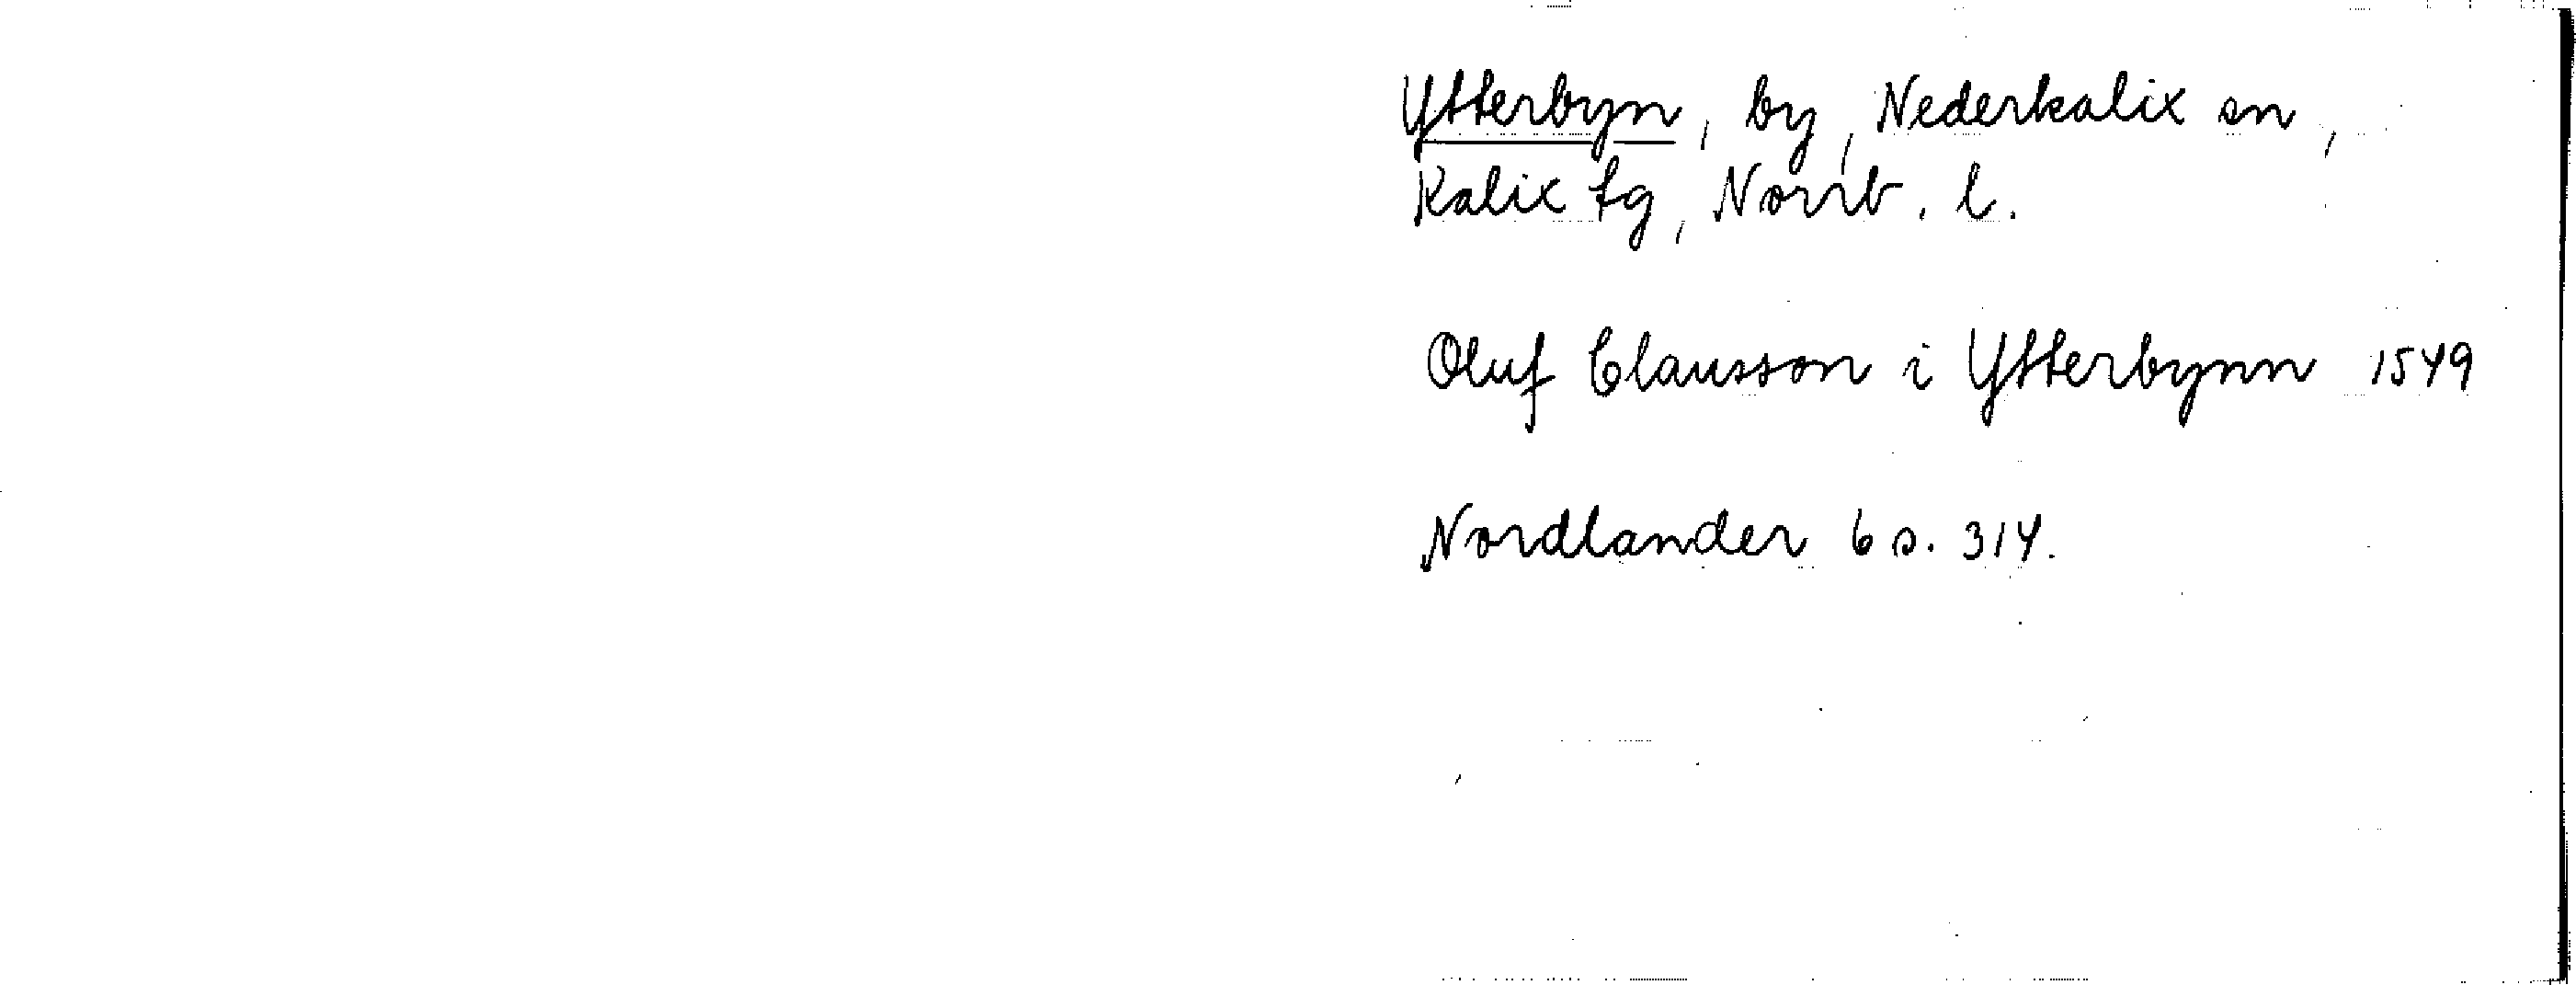 Ytterbyn, by, Nederkalix sn,
Kalix tg, Norrb. l.
Oluf Clausson i Ytterbynn 1549
Nordlander 6 s. 314.